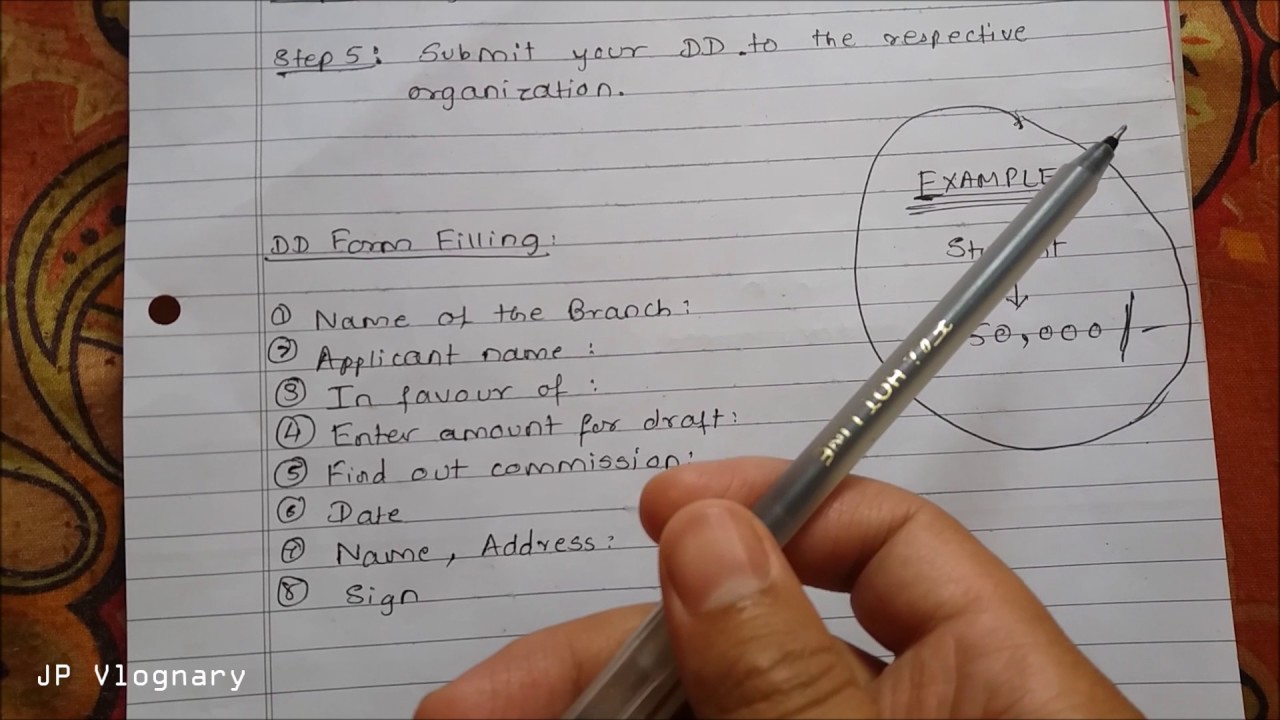 Step 5: Submit your DD to the respective
organization.
EXAMPLE
DD Form Filling:
50,000/-
① Name of the Branch:
② Applicant name:
③ In favour of:
④ Enter amount for draft:
⑤ Find out commission:
⑥ Date
⑦ Name, Address:
⑧ Sign
JP Vlognary